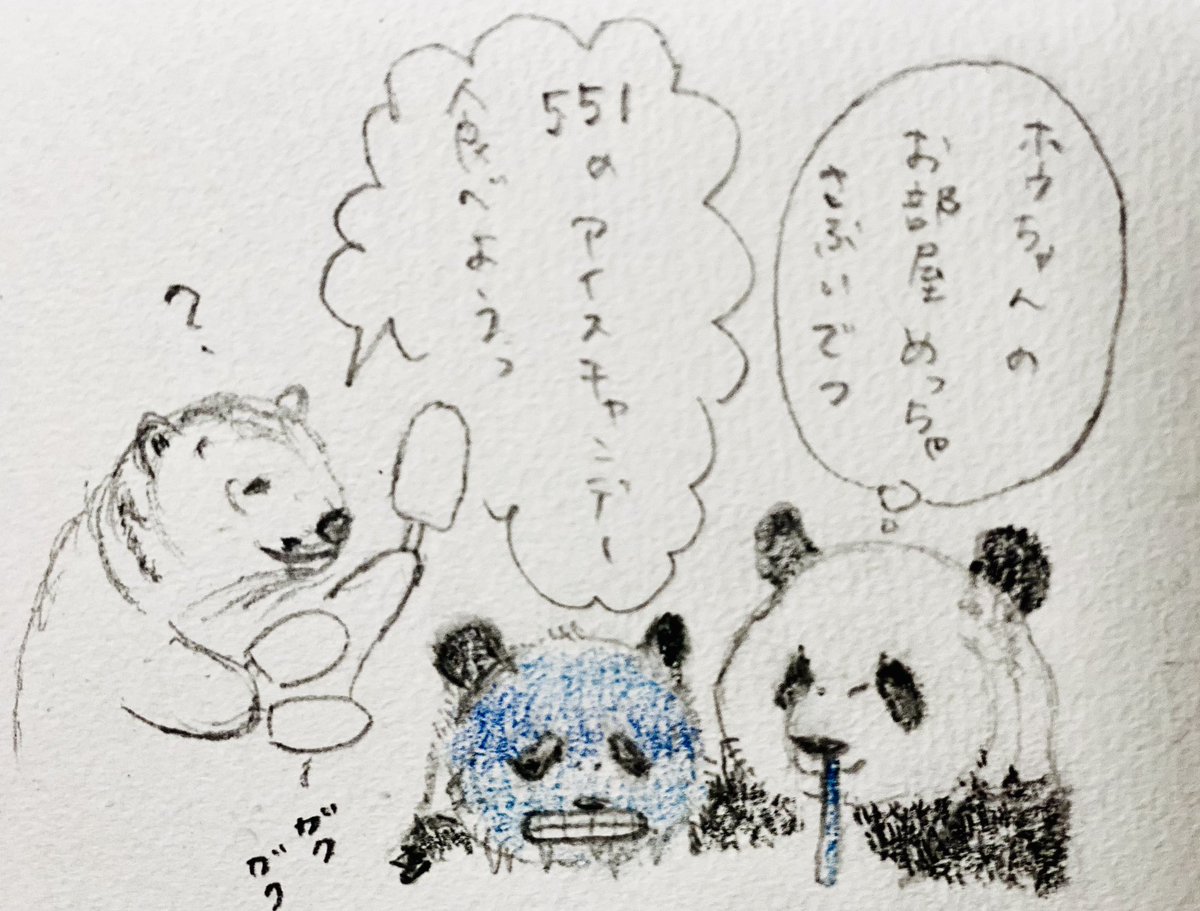 ホウちゃんの
お部屋めっちゃ
さぶいでつ
551
のアイスキャンデー
食べようっ
?
ガク
ガク